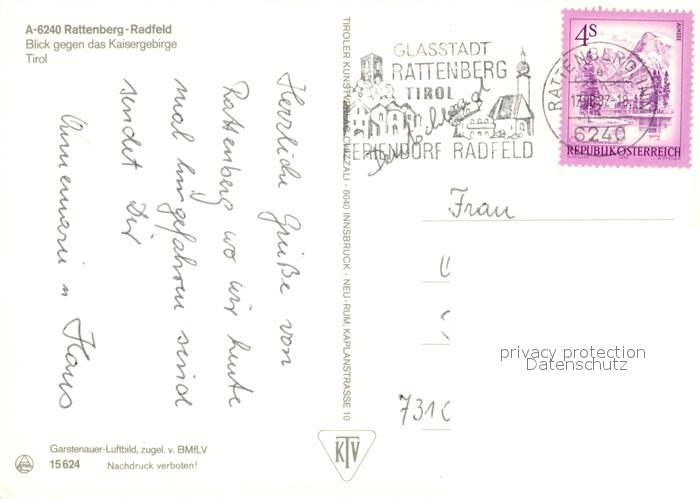 A-6240 Rattenberg-Radfeld
Blick gegen das Kaisergebirge
Tirol
Herrliche Grüße von
Rattenberg wo wir heute
mal hingefahren sind
sendet Dir
Annemarie u Hans
Garstenauer-Luftbild, zugel. v. BMfLV
15624 Nachdruck verboten!
TIROLER KUNSTVERLAG CHIZZALI · 6040 INNSBRUCK - NEU-RUM, KAPLANSTRASSE 10
KTV
GLASSTADT
RATTENBERG
TIROL
FERIENDORF RADFELD
RATTENBERG/INN
6240
4S
ALMSEE
REPUBLIK ÖSTERREICH
Frau
7310
privacy protection
Datenschutz